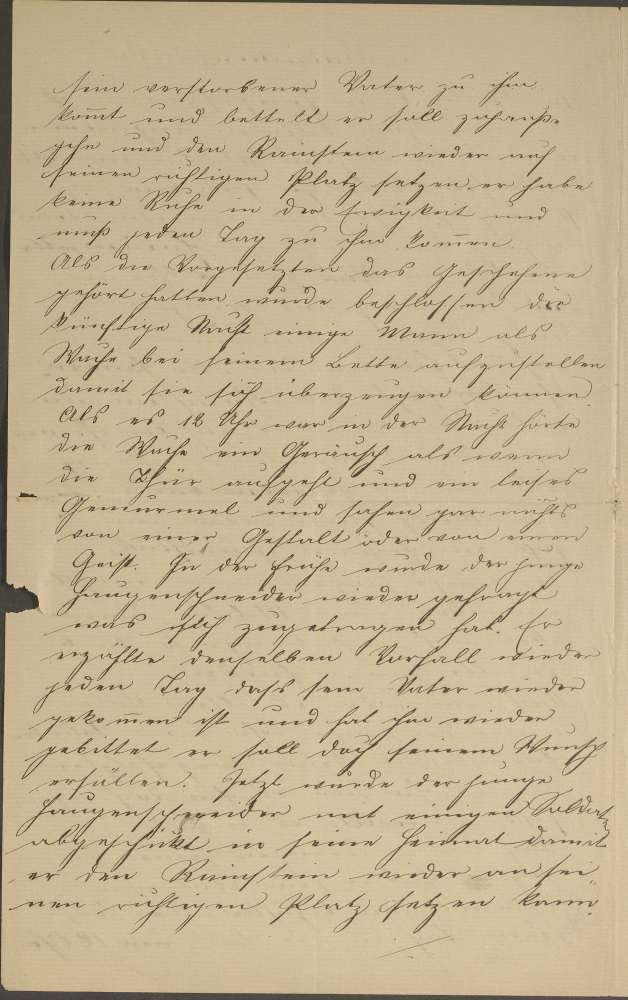 sein verstorbener Vater zu ihm
kom̄t und bettelt er soll zuhause
gehn und den Rainstein wieder auf
seinen richtigen Platz setzen er habe
keine Ruhe in der Ewigkeit und
muß jeden Tag zu ihm kom̄en.
Als die Vorgesetzten das Geschehene
gehört hatten wurde beschlossen die
künftige Nacht einige Mann als
Wache bei seinem Bette aufzustellen
damit sie sich überzeugen können.
Als es 12 Uhr war in der Nacht hörte
die Wache ein Geräusch als wenn
die Thür aufgeht und ein leises
Gemurmel und sahen gar nichts
von einer Gestalt oder von einen
Geist. In der Frühe wurde der junge
Haugenschneider wieder gefragt
was sich zugetragen hat. Er
erzählte denselben Vorfall wieder
jeden Tag dass sein Vater wieder
gekom̄en ist und hat ihn wieder
gebittet er soll doch seinem Wunsch
erfüllen. Jetzt wurde der junge
Haugenschneider mit einigen Soldaten
abgeschickt in seine Heimat damit
er den Rainstein wieder an sei
nen richtigen Platz setzen kann.